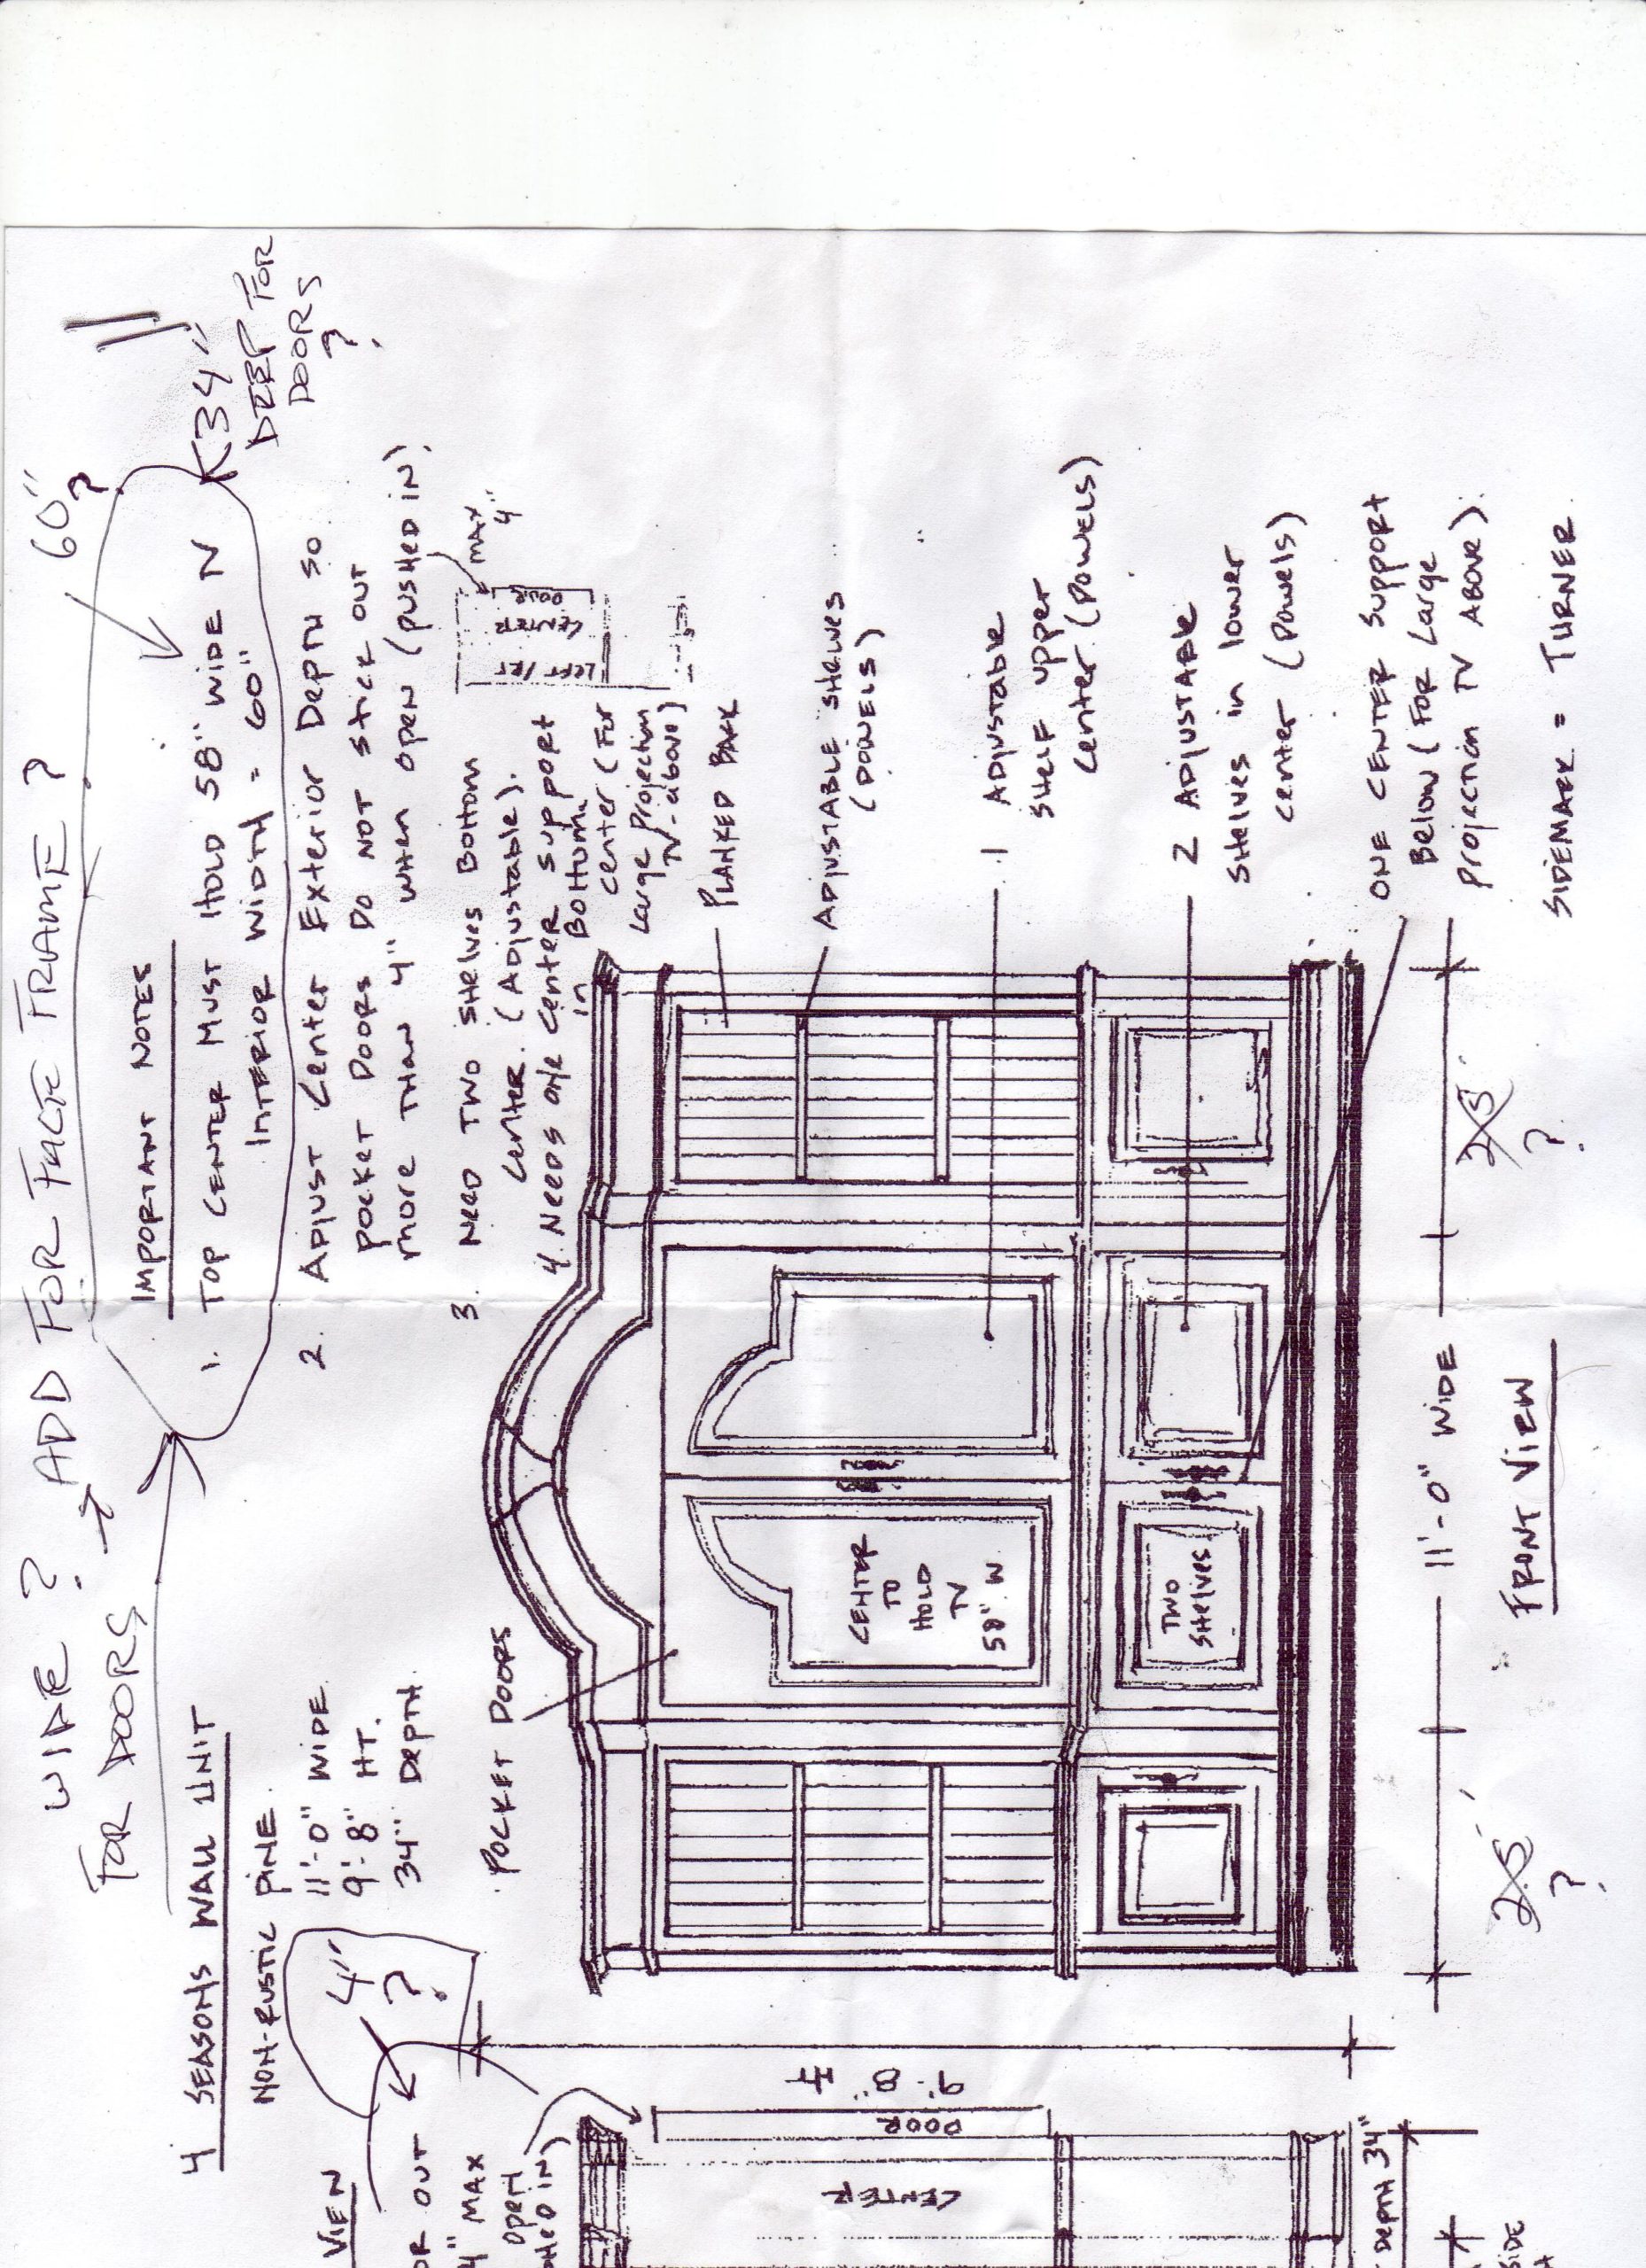 WIDE ? → ADD FOR FACE FRAME ? 60" ?
FOR DOORS
4 SEASONS WALL UNIT
NON-RUSTIC PINE.
11'-0" WIDE
9'-8" HT.
34" DEPTH
4" ?
IMPORTANT NOTES
1. TOP CENTER MUST HOLD 58" WIDE
INTERIOR WIDTH = 60"
34"
DEEP FOR
DOORS
?
2. ADJUST CENTER EXTERIOR DEPTH SO
POCKET DOORS DO NOT STICK OUT
MORE THAN 4" WHEN OPEN (PUSHED IN).
3. NEED TWO SHELVES BOTTOM
CENTER. (ADJUSTABLE).
4. NEEDS ONE CENTER SUPPORT
IN BOTTOM
CENTER (FOR
LARGE PROJECTION
TV-ABOVE)
MAX
4"
LEFT/RT
CENTER
DOOR
POCKET DOORS
PLANKED BACK
ADJUSTABLE SHELVES
(DOWELS)
1 ADJUSTABLE
SHELF UPPER
CENTER (DOWELS)
2 ADJUSTABLE
SHELVES IN LOWER
CENTER (DOWELS)
ONE CENTER SUPPORT
BELOW (FOR LARGE
PROJECTION TV ABOVE).
SIDEMARK = TURNER
CENTER
TO
HOLD
TV
58" W
TWO
SHELVES
VIEW
OR OUT
4" MAX
OPEN
HED IN)
9'-8" HT
DOOR
CENTER
DEPTH 34"
SIDE
2.5' ?
11'-0" WIDE
2.5' ?
FRONT VIEW